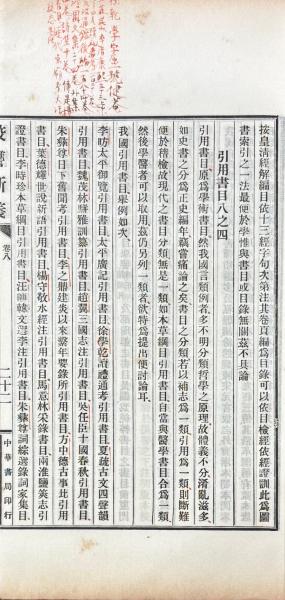 按皇清經解編目依十三經字句次第注其卷頁編爲目錄可以依目檢經依經證訓此爲圖
書索引之一法最便於學惟與書或目錄無關茲不具論
引用書目八之四
引用書目原爲學術書目然我國言類例者多不明分類哲學之原理故體義不分淆亂滋多
如史書之分爲正史編年竊嘗痛論之矣書目之分類若以補志爲一類引用爲一類則斷難
便於稽檢故現代之書目分類無是一類如本草綱目引用書目自當與醫學書目合爲一類
然後學醫者可以取用茲仍另列一類者欲特爲提出便討論耳
我國引用書目舉例如次
李昉太平御覽引用書目太平廣記引用書目徐學乾讀禮通考引用書目夏竦古文四聲韻
引用書目魏茂林駢雅訓纂引用書目趙翼三國志注引用書目吳任臣十國春秋引用書目
朱彝尊日下舊聞考引用書目李之鼎建炎以來繫年要錄所引用書目方中德古事比引用
書目葉德耀世說新語引用書目楊守敬水經注引用書目馬意林采錄書目兩淮鹽筴志引
證書目李時珍本草綱目引用書目汪師韓文選李注引用書目朱彝尊詞綜選錄詞家集目
卷八
二十二
中華書局印行